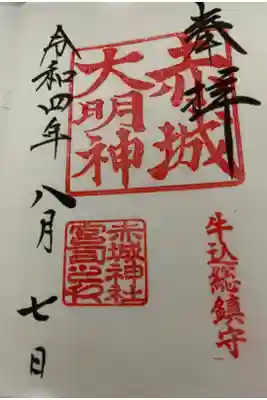 奉拝
赤城
大明神
牛込総鎮守
赤城神社
宮司之印
令和四年
八月
七日